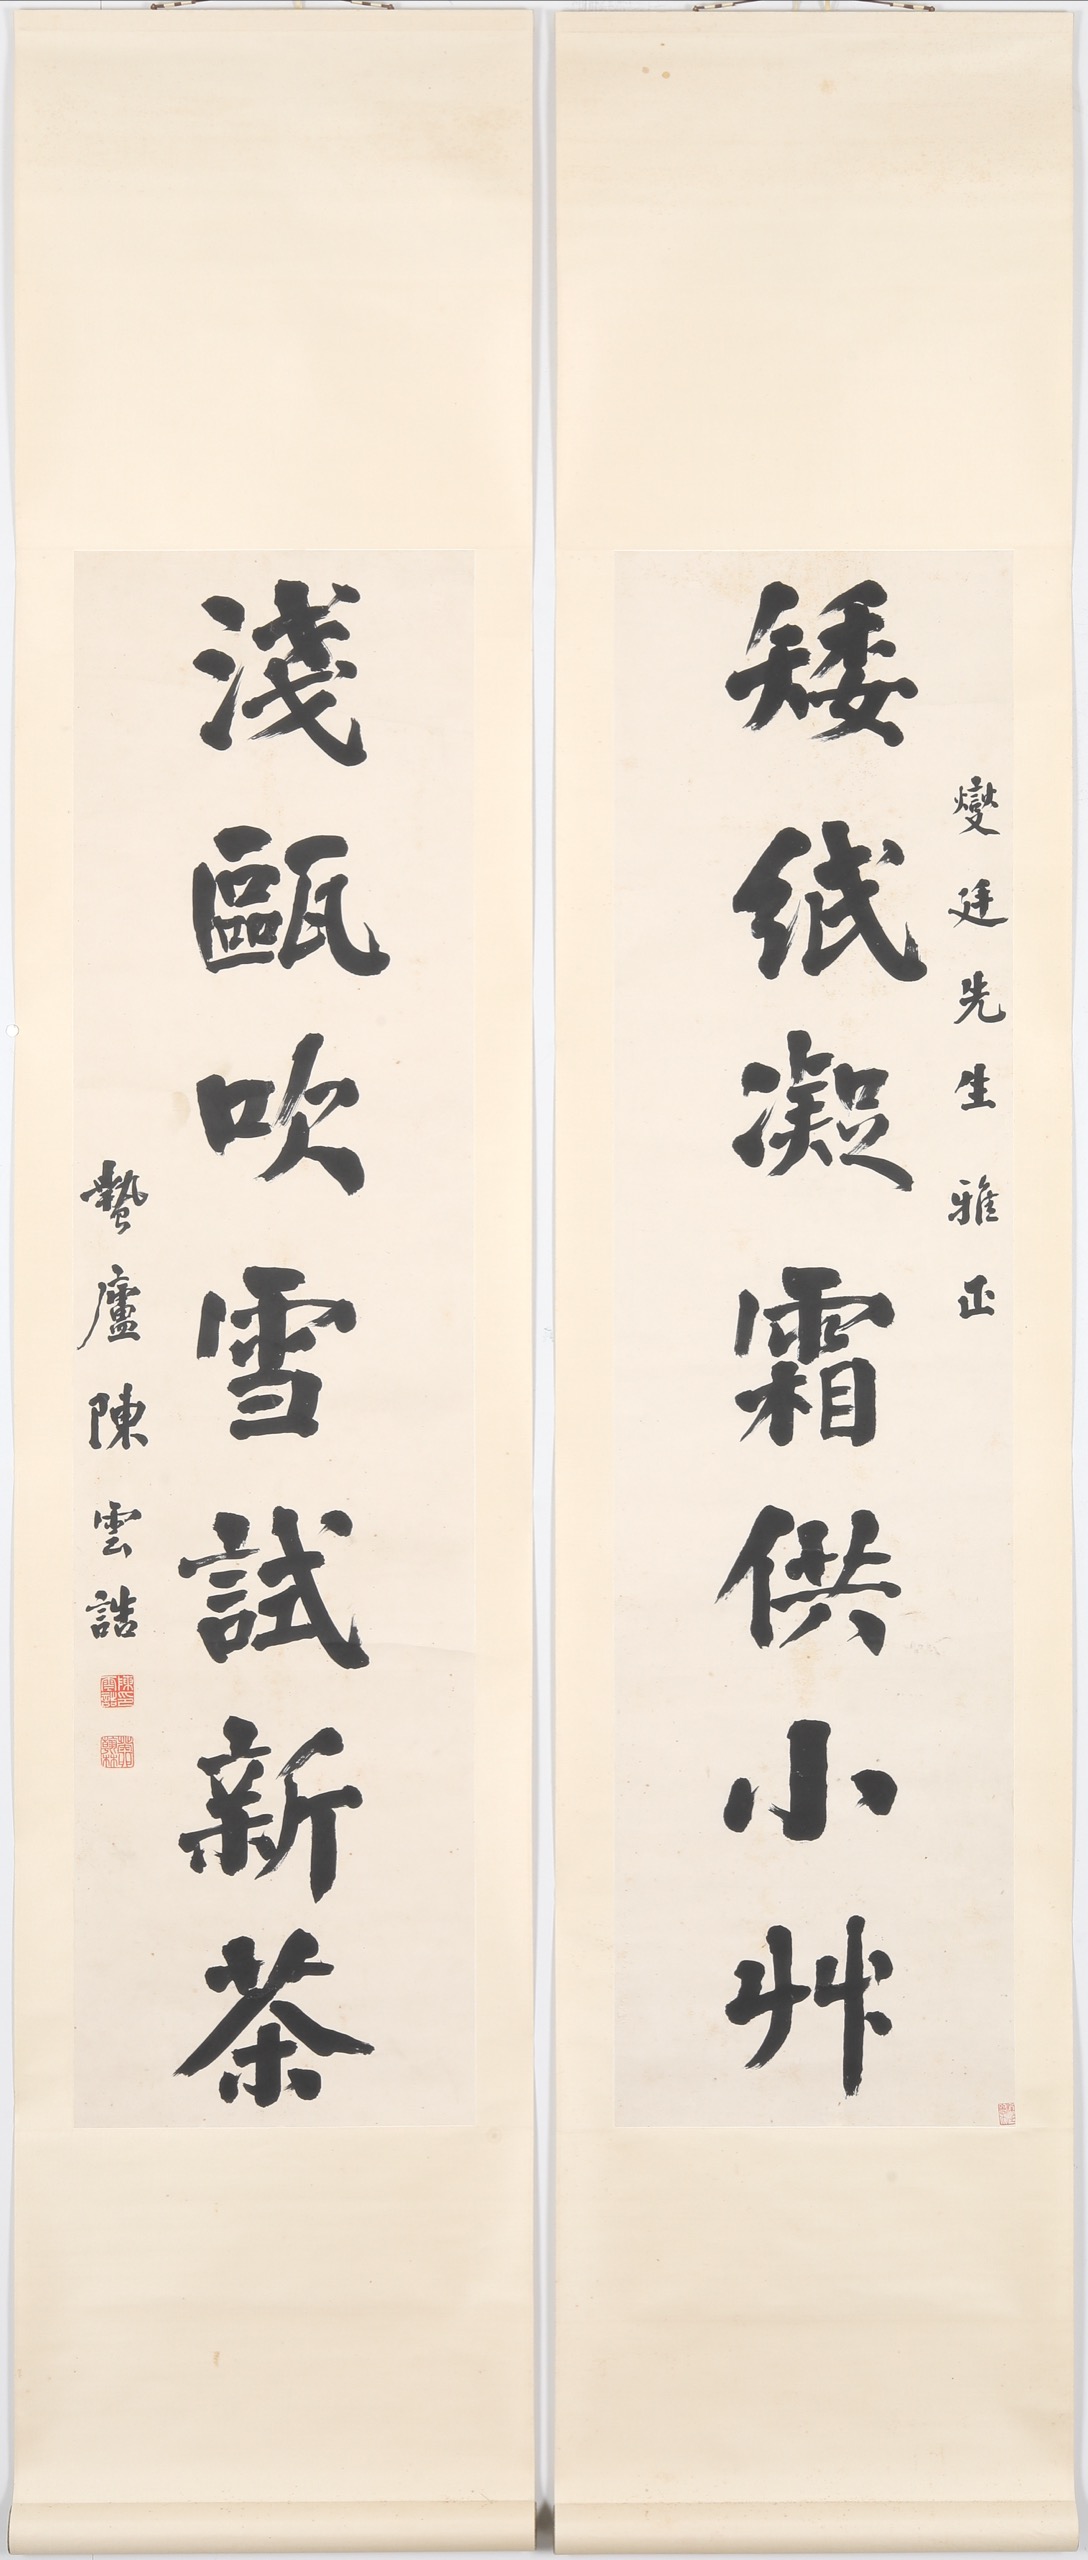 矮紙凝霜供小艸
燮廷先生雅正
淺甌吹雪試新茶
蟄廬陳雲誥